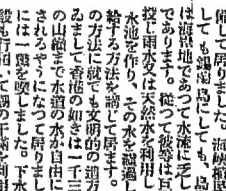 備して居りました。海峽植
しても錫蘭島にしても、島
地であつて水流に乏し
であります。從つて彼等は
投じ雨水又は天然水を利用し
水池を作り、その水を濾過し
給する方法を講じて居ます。
の方法に就ても文明的の道方
ゐまして香港の如きは一千三
の山巓まで水道の水が自由に
されるやうになつて居りまし
には一驚を喫しました。下水
設も行届いて潮の干滿を利用